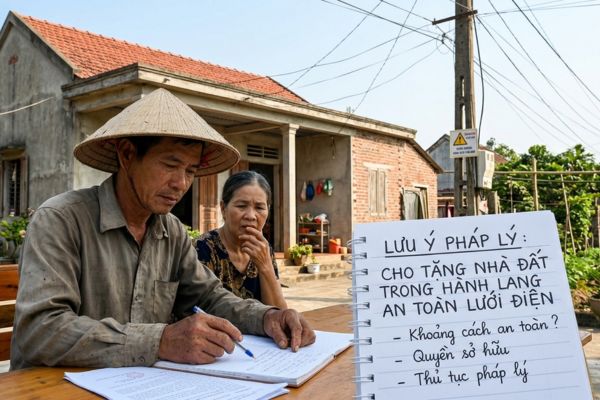 LƯU Ý PHÁP LÝ:
CHO TẶNG NHÀ ĐẤT
TRONG HÀNH LANG
AN TOÀN LƯỚI ĐIỆN
- Khoảng cách an toàn?
- Quyền sở hữu
- Thủ tục pháp lý